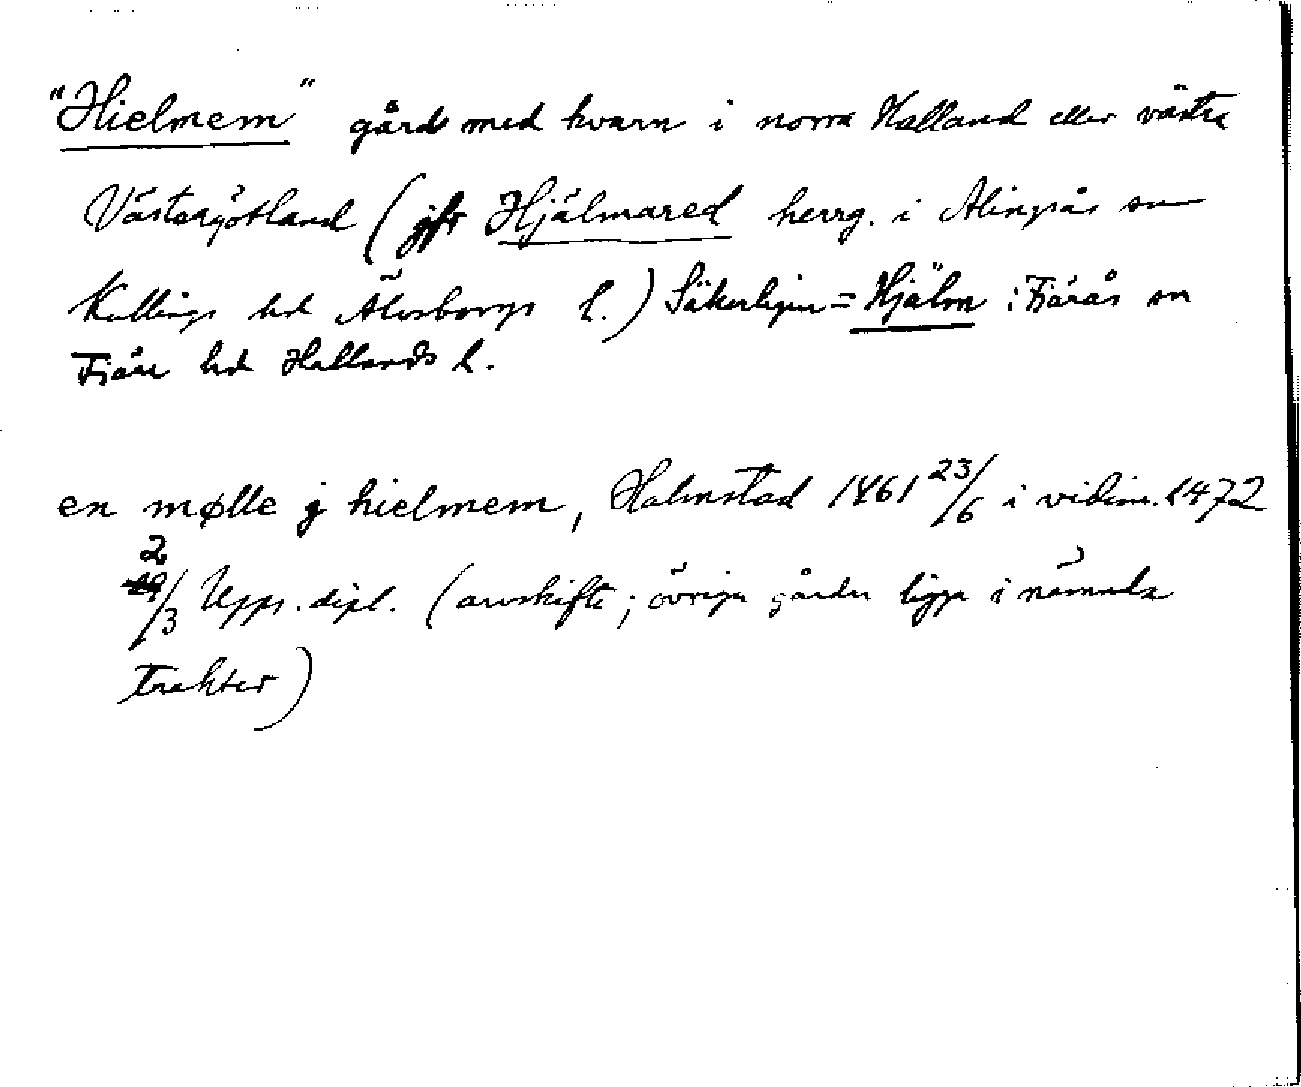 "Hielmem" gård med kvarn i norra Halland eller västra
Västergötland (jfr Hjälmared herrg. i Alingsås sn
Kullings hd Älvsborgs l.) Säkerligen = Hjälm i Fjärås sn
Fjäre hd Hallands l.
en mølle j hielmem, Halmstad 1461 23/6 i vidim. 1472
2/3 Upps. dipl. (arvskifte; övriga gårdar ligga i nämnda
trakter)